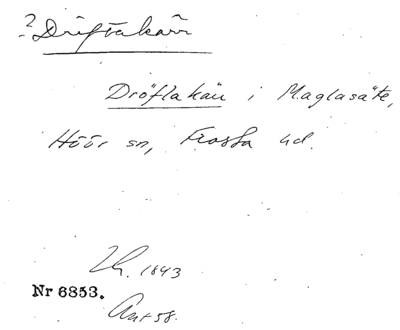 ? Driftakärr
Dröflakärr i Maglasäte,
Höör sn, Frosta hd.
Lh. 1843
Nr 6853.
Ant 58.